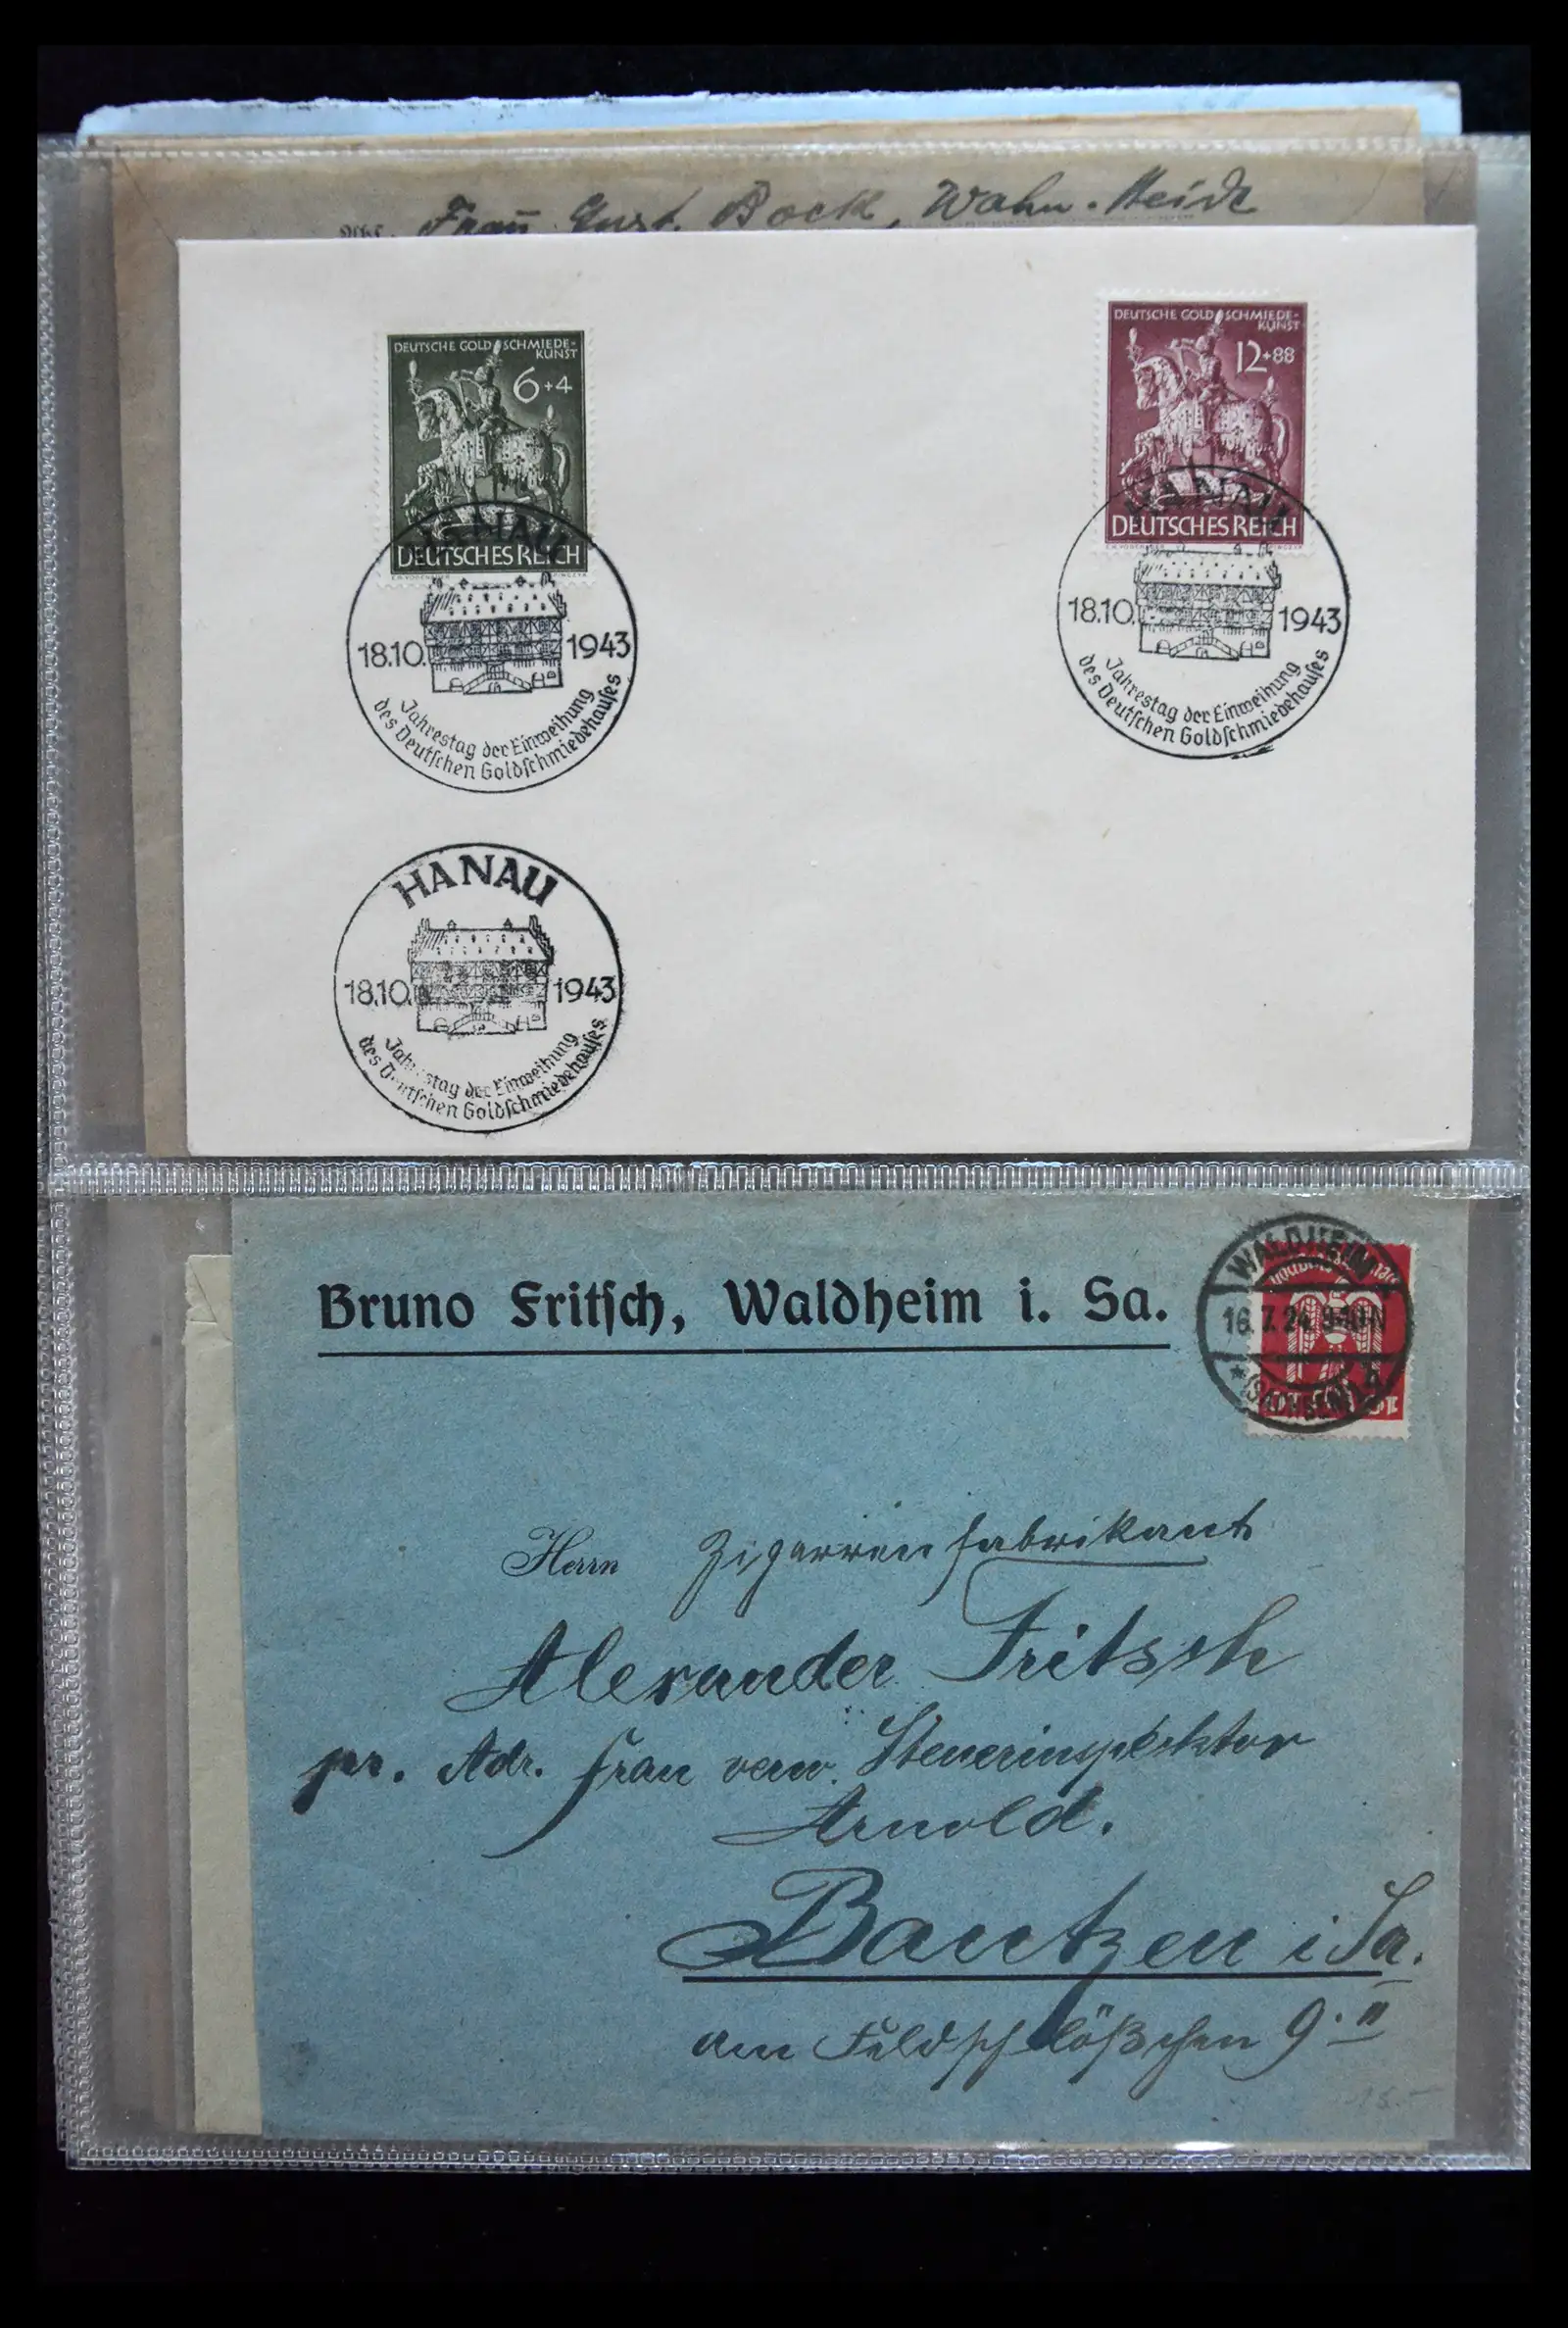 Abs. Frau Gust. Bock, Wahn-Heide
DEUTSCHE GOLDSCHMIEDE-
KUNST
6+4
DEUTSCHES REICH
HANAU
18.10. 1943
Jahrestag der Einweihung
des Deutschen Goldschmiedehauses
DEUTSCHE GOLDSCHMIEDE-
KUNST
12+88
DEUTSCHES REICH
HANAU
18.10. 1943
Jahrestag der Einweihung
des Deutschen Goldschmiedehauses
HANAU
18.10. 1943
Jahrestag der Einweihung
des Deutschen Goldschmiedehauses
Bruno Fritsch, Waldheim i. Sa.
WALDHEIM
16.7.24. 9-10 N
* (SACHSEN)
Herrn Zigarrenfabrikant
Alexander Fritssch
pr. Adr. Frau verw. Steuerinspektor
Arnold.
Bautzen i Sa.
am Feldschlößchen 9. II
15.-